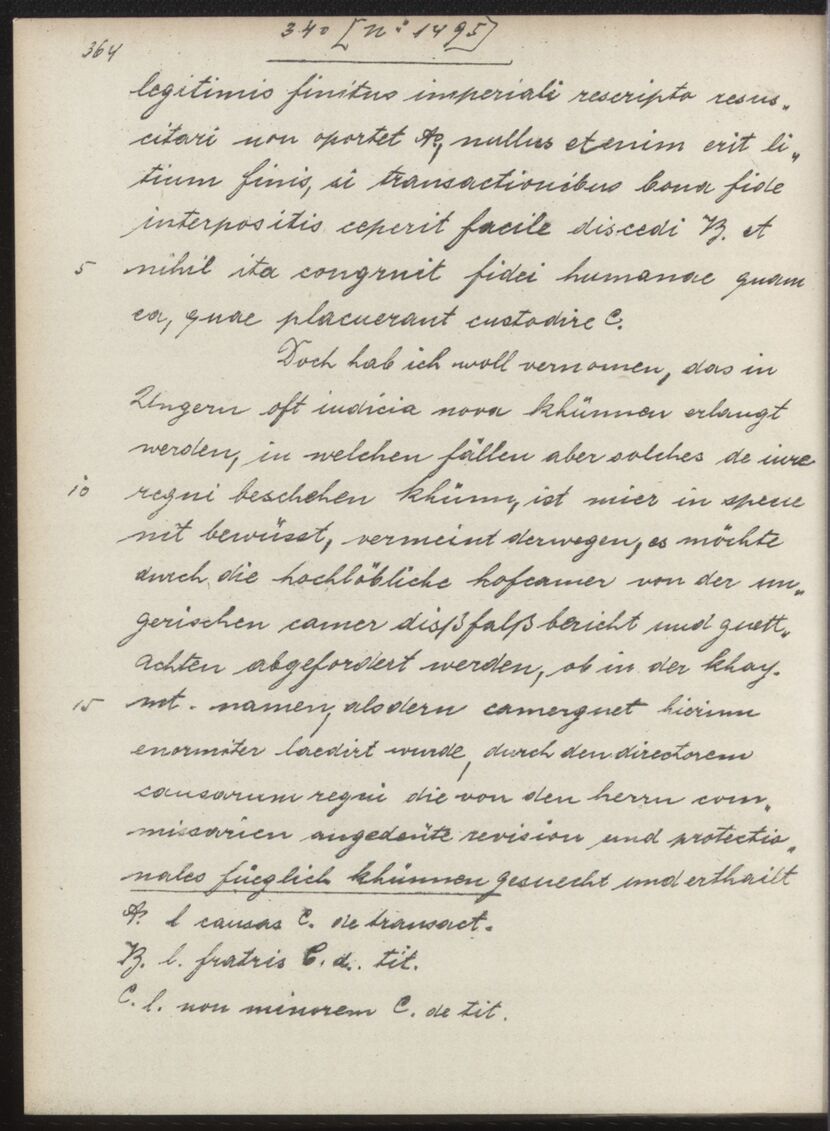 364
340 [Nº 1495]
legitimis finitus imperiali rescripto resus„
citari non oportet A., nullus etenim erit li„
tium finis, si transactionibus bona fide
interpositis ceperit facile discedi B. et
5 nihil ita congruit fidei humanae quam
ea, quae placuerant custodire C.
Doch hab ich woll vernomen, das in
Ungern oft iudicia nova khünnen erlangt
werden, in welchen fällen aber solches de iure
10 regni beschehen khünn, ist mier in specie
nit bewüsst, vermeint derwegen, es möchte
durch die hochlöbliche hofcamer von der un„
gerischen camer disßfalß bericht und guett„
achten abgefordert werden, ob in der khay.
15 mt. namen, als dern camerguet hierinn
enormiter laedirt wurde, durch den directorem
causarum regni die von den herrn com„
missarien angedeüte revision und protectio„
nales füeglich khünnen gesuecht und erthailt
A. l causas C. de transact.
B. l. fratris C. d. tit.
C. l. non minorem C. de tit.